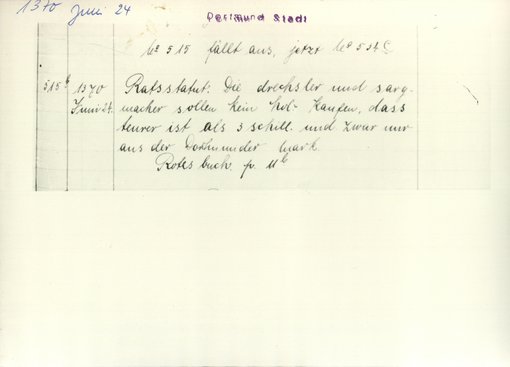 1370 Juni 24
Dortmund Stadt
No 515 fällt aus, jetzt No 514 c
515 b 1370 Ratsstatut: Die drechsler und sarg-
Juni 24. macher sollen kein hol- kaufen, dass
teurer ist als 3 schill. und zwar nur
aus der Dortmunder Mark.
Rotes buch p. 11 b